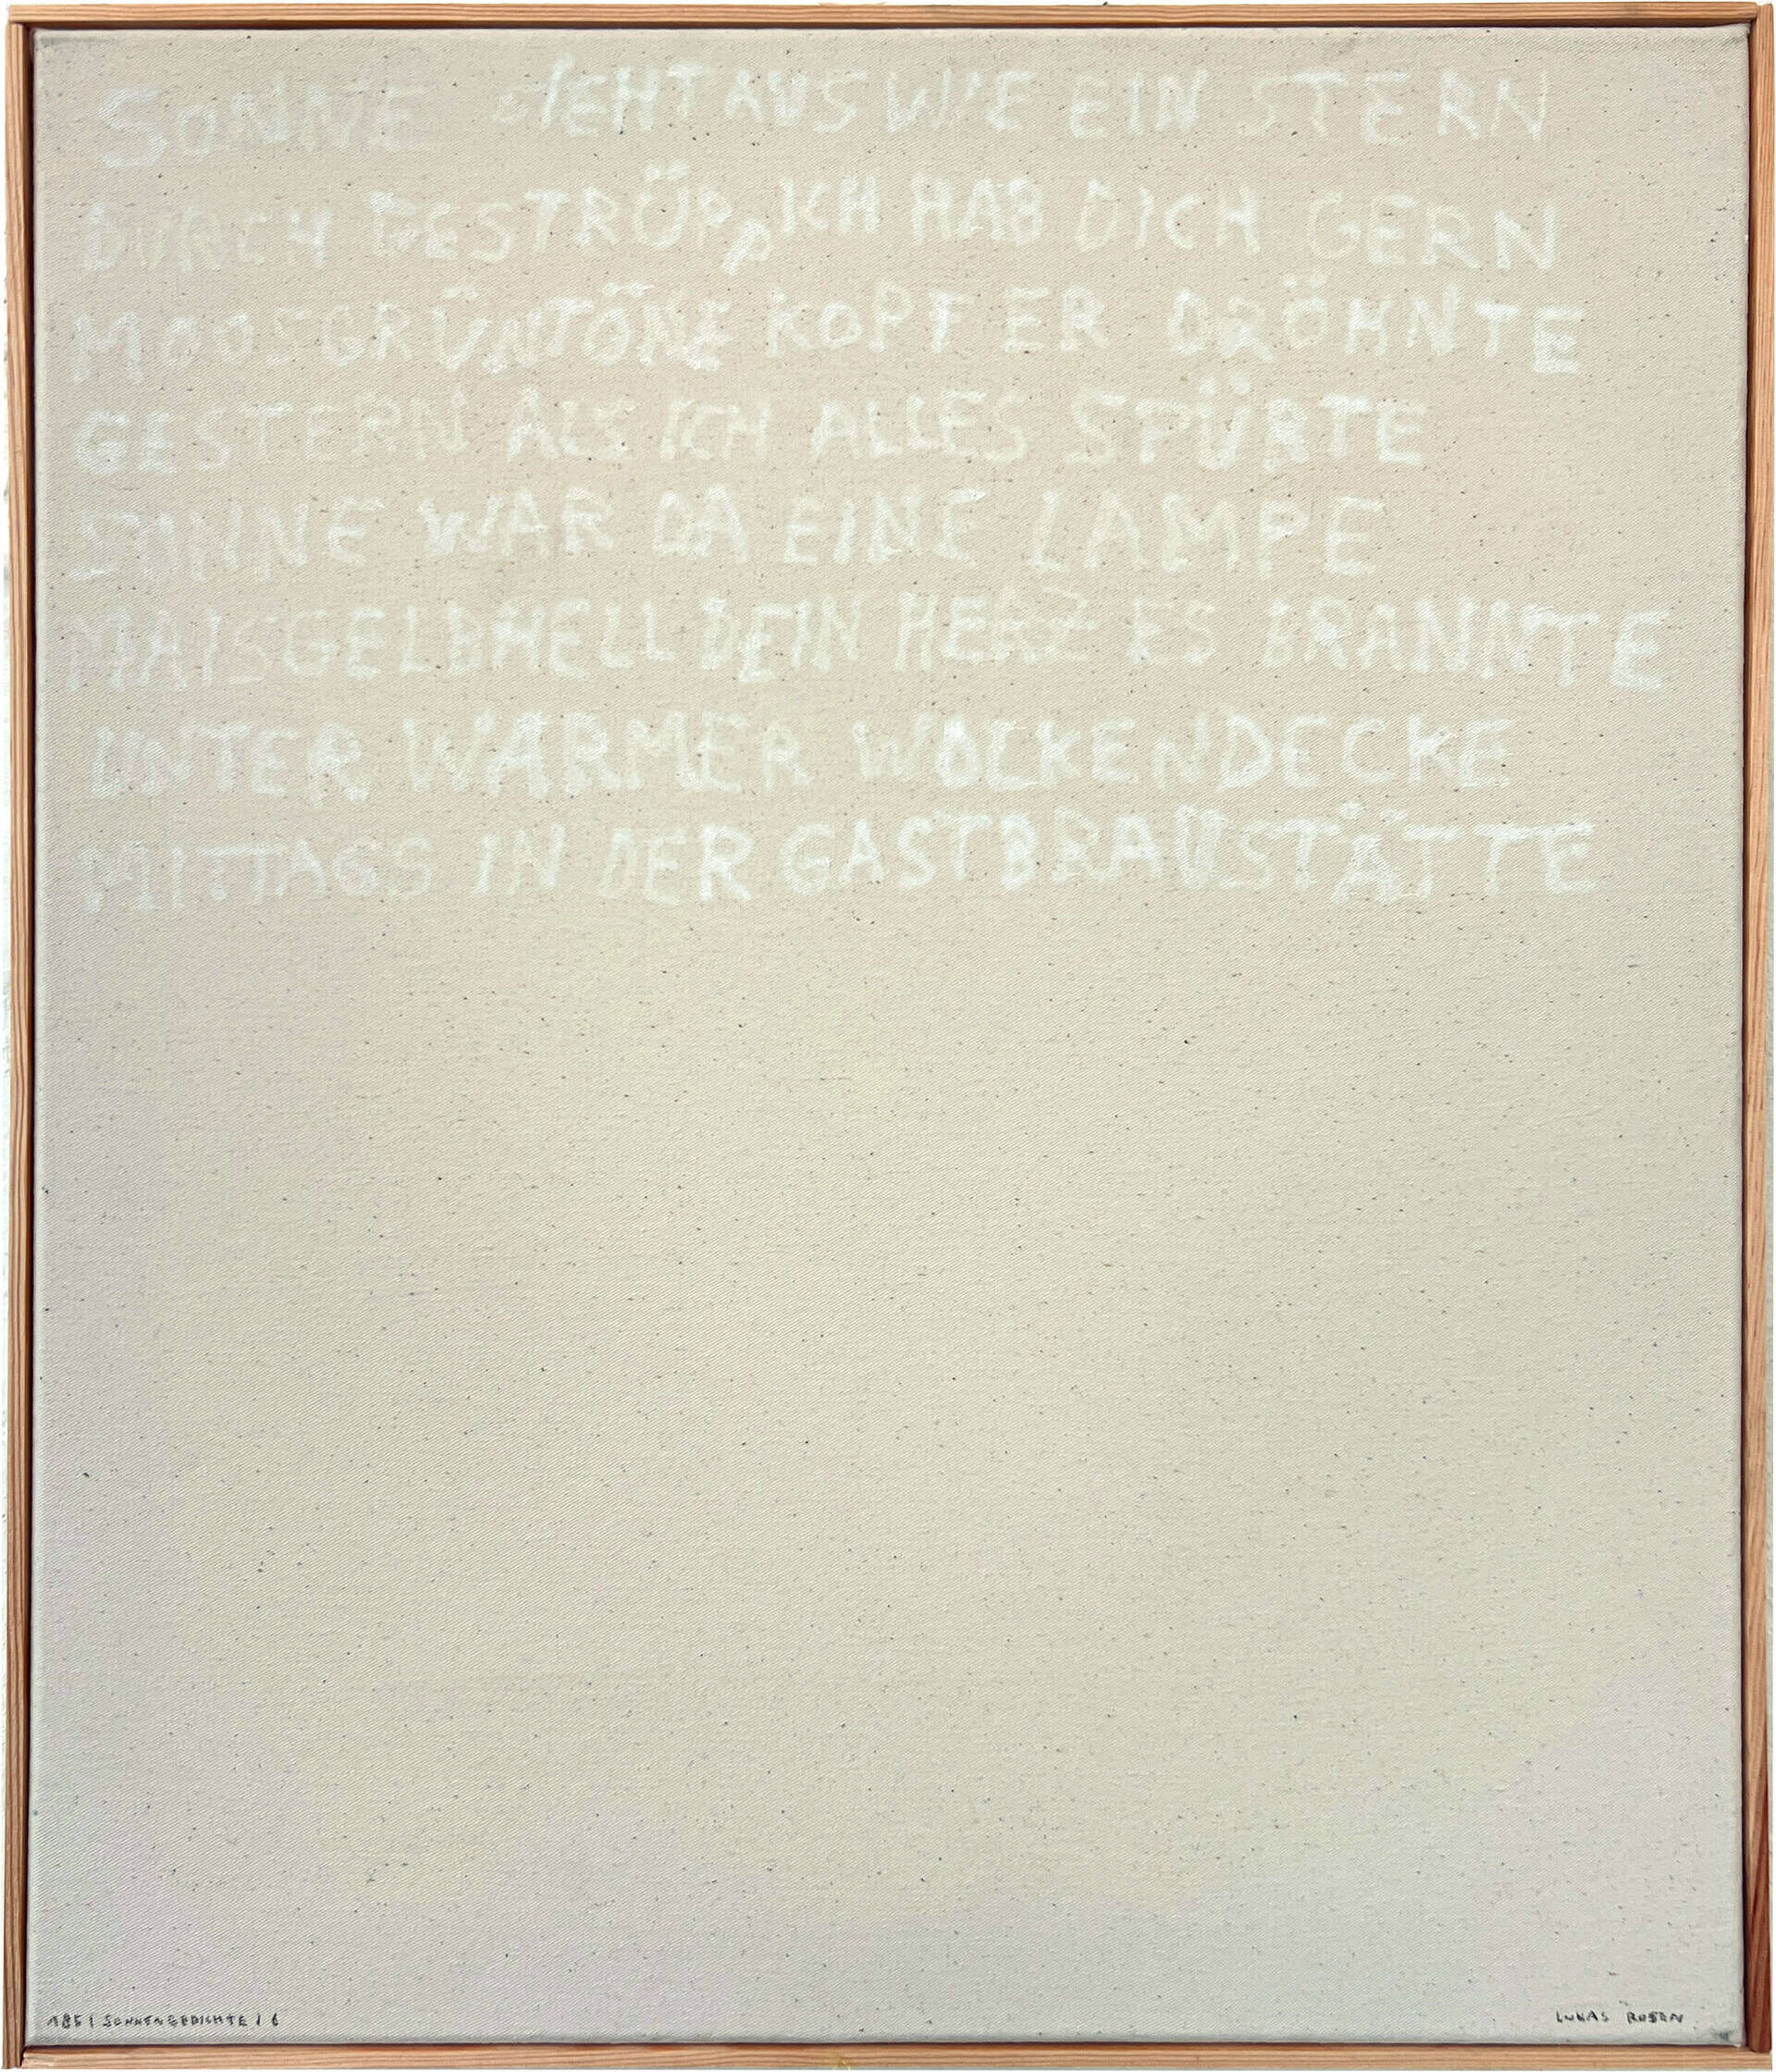 SONNE SIEHT AUS WIE EIN STERN
DURCH GESTRÜPP ICH HAB DICH GERN
MOOSGRÜNTÖNE KOPF ER DRÖHNTE
GESTERN ALS ICH ALLES SPÜRTE
SONNE WAR DA EINE LAMPE
MAISGELBHELL DEIN HERZ ES BRANNTE
UNTER WARMER WOLKENDECKE
MITTAGS IN DER GASTBRAUSTÄTTE
185 | SONNENGEDICHTE | 6
LUKAS RUSEN